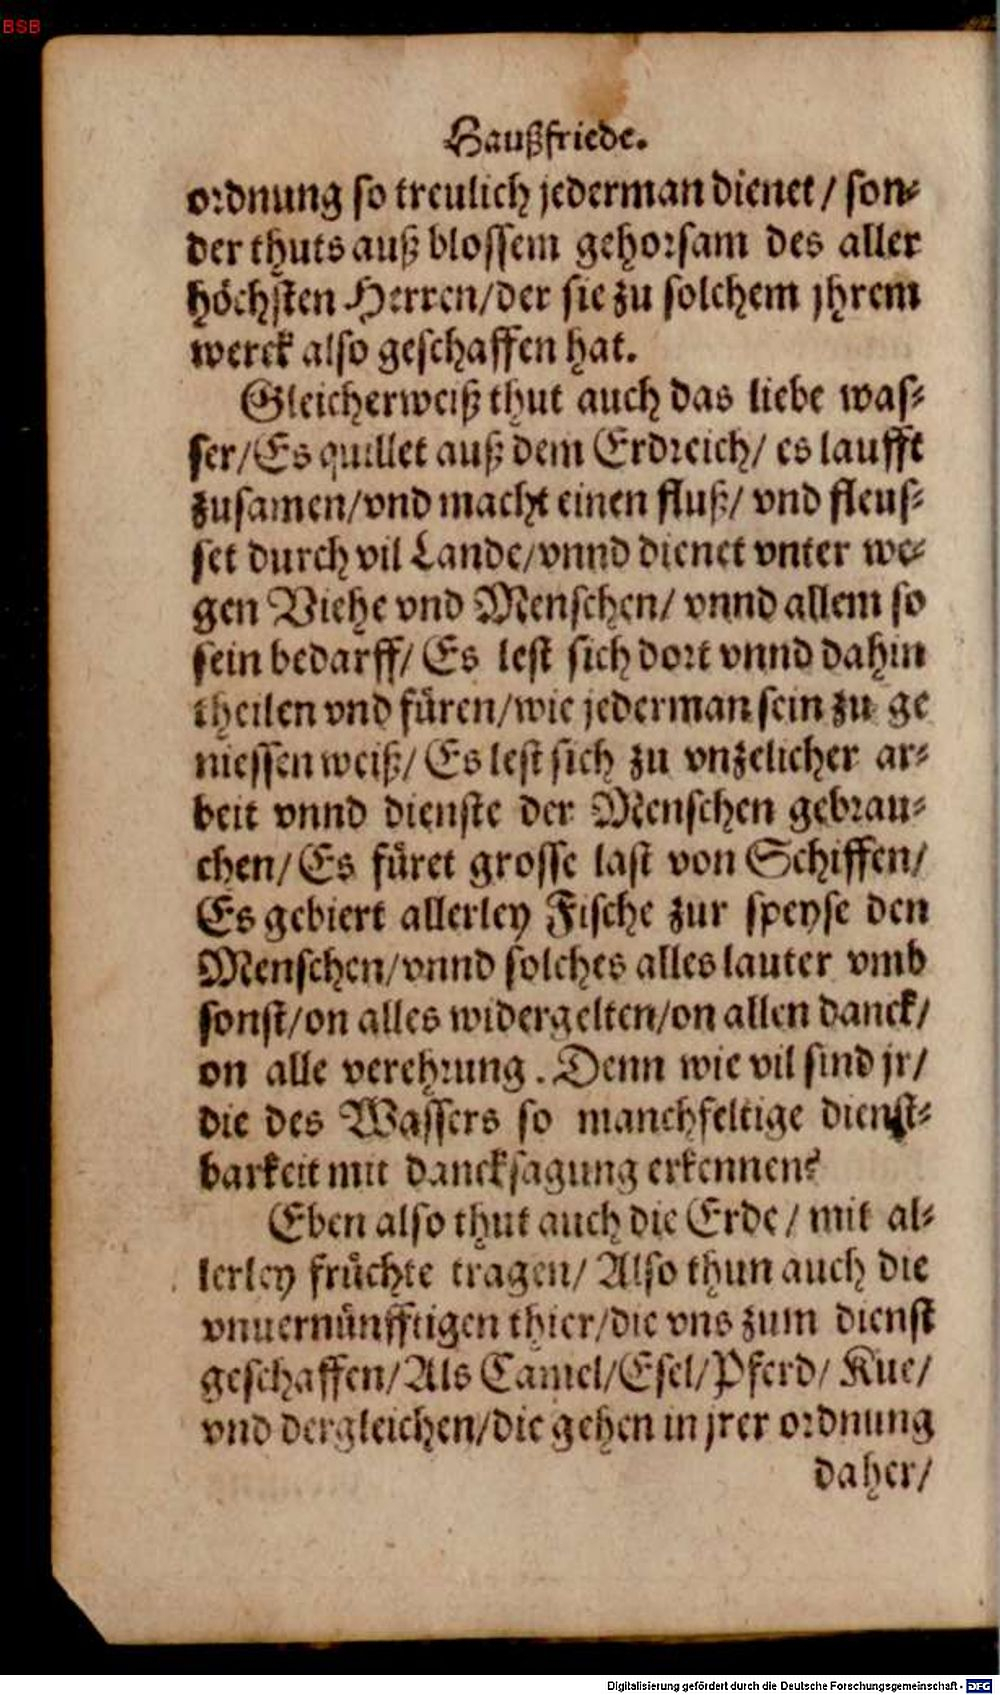 BSB
Haußfriede.
ordnung so treulich jederman dienet / son⸗
der thuts auß blossem gehorsam des aller
höchsten Herren/der sie zu solchem jhrem
werck also geschaffen hat.
Gleicherweiß thut auch das liebe was⸗
ser/Es quillet auß dem Erdreich/ es laufft
zusamen/vnd macht einen fluß/ vnd fleus⸗
set durch vil Lande/vnnd dienet vnter we⸗
gen Viehe vnd Menschen/ vnnd allem so
sein bedarff/ Es lest sich dort vnnd dahin
theilen vnd füren/wie jederman sein zu ge
niessen weiß/ Es lest sich zu vnzelicher ar⸗
beit vnnd dienste der Menschen gebrau⸗
chen/ Es füret grosse last von Schiffen/
Es gebiert allerley Fische zur speyse den
Menschen/vnnd solches alles lauter vmb
sonst/on alles widergelten/on allen danck/
on alle verehrung. Denn wie vil sind jr/
die des Wassers so manchfeltige dienst⸗
barkeit mit dancksagung erkennen?
Eben also thut auch die Erde / mit al⸗
lerley früchte tragen/ Also thun auch die
vnuernünfftigen thier/die vns zum dienst
geschaffen/Als Camel/Esel/Pferd/ Küe/
vnd dergleichen/die gehen in jrer ordnung
daher/
Digitalisierung gefördert durch die Deutsche Forschungsgemeinschaft - DFG